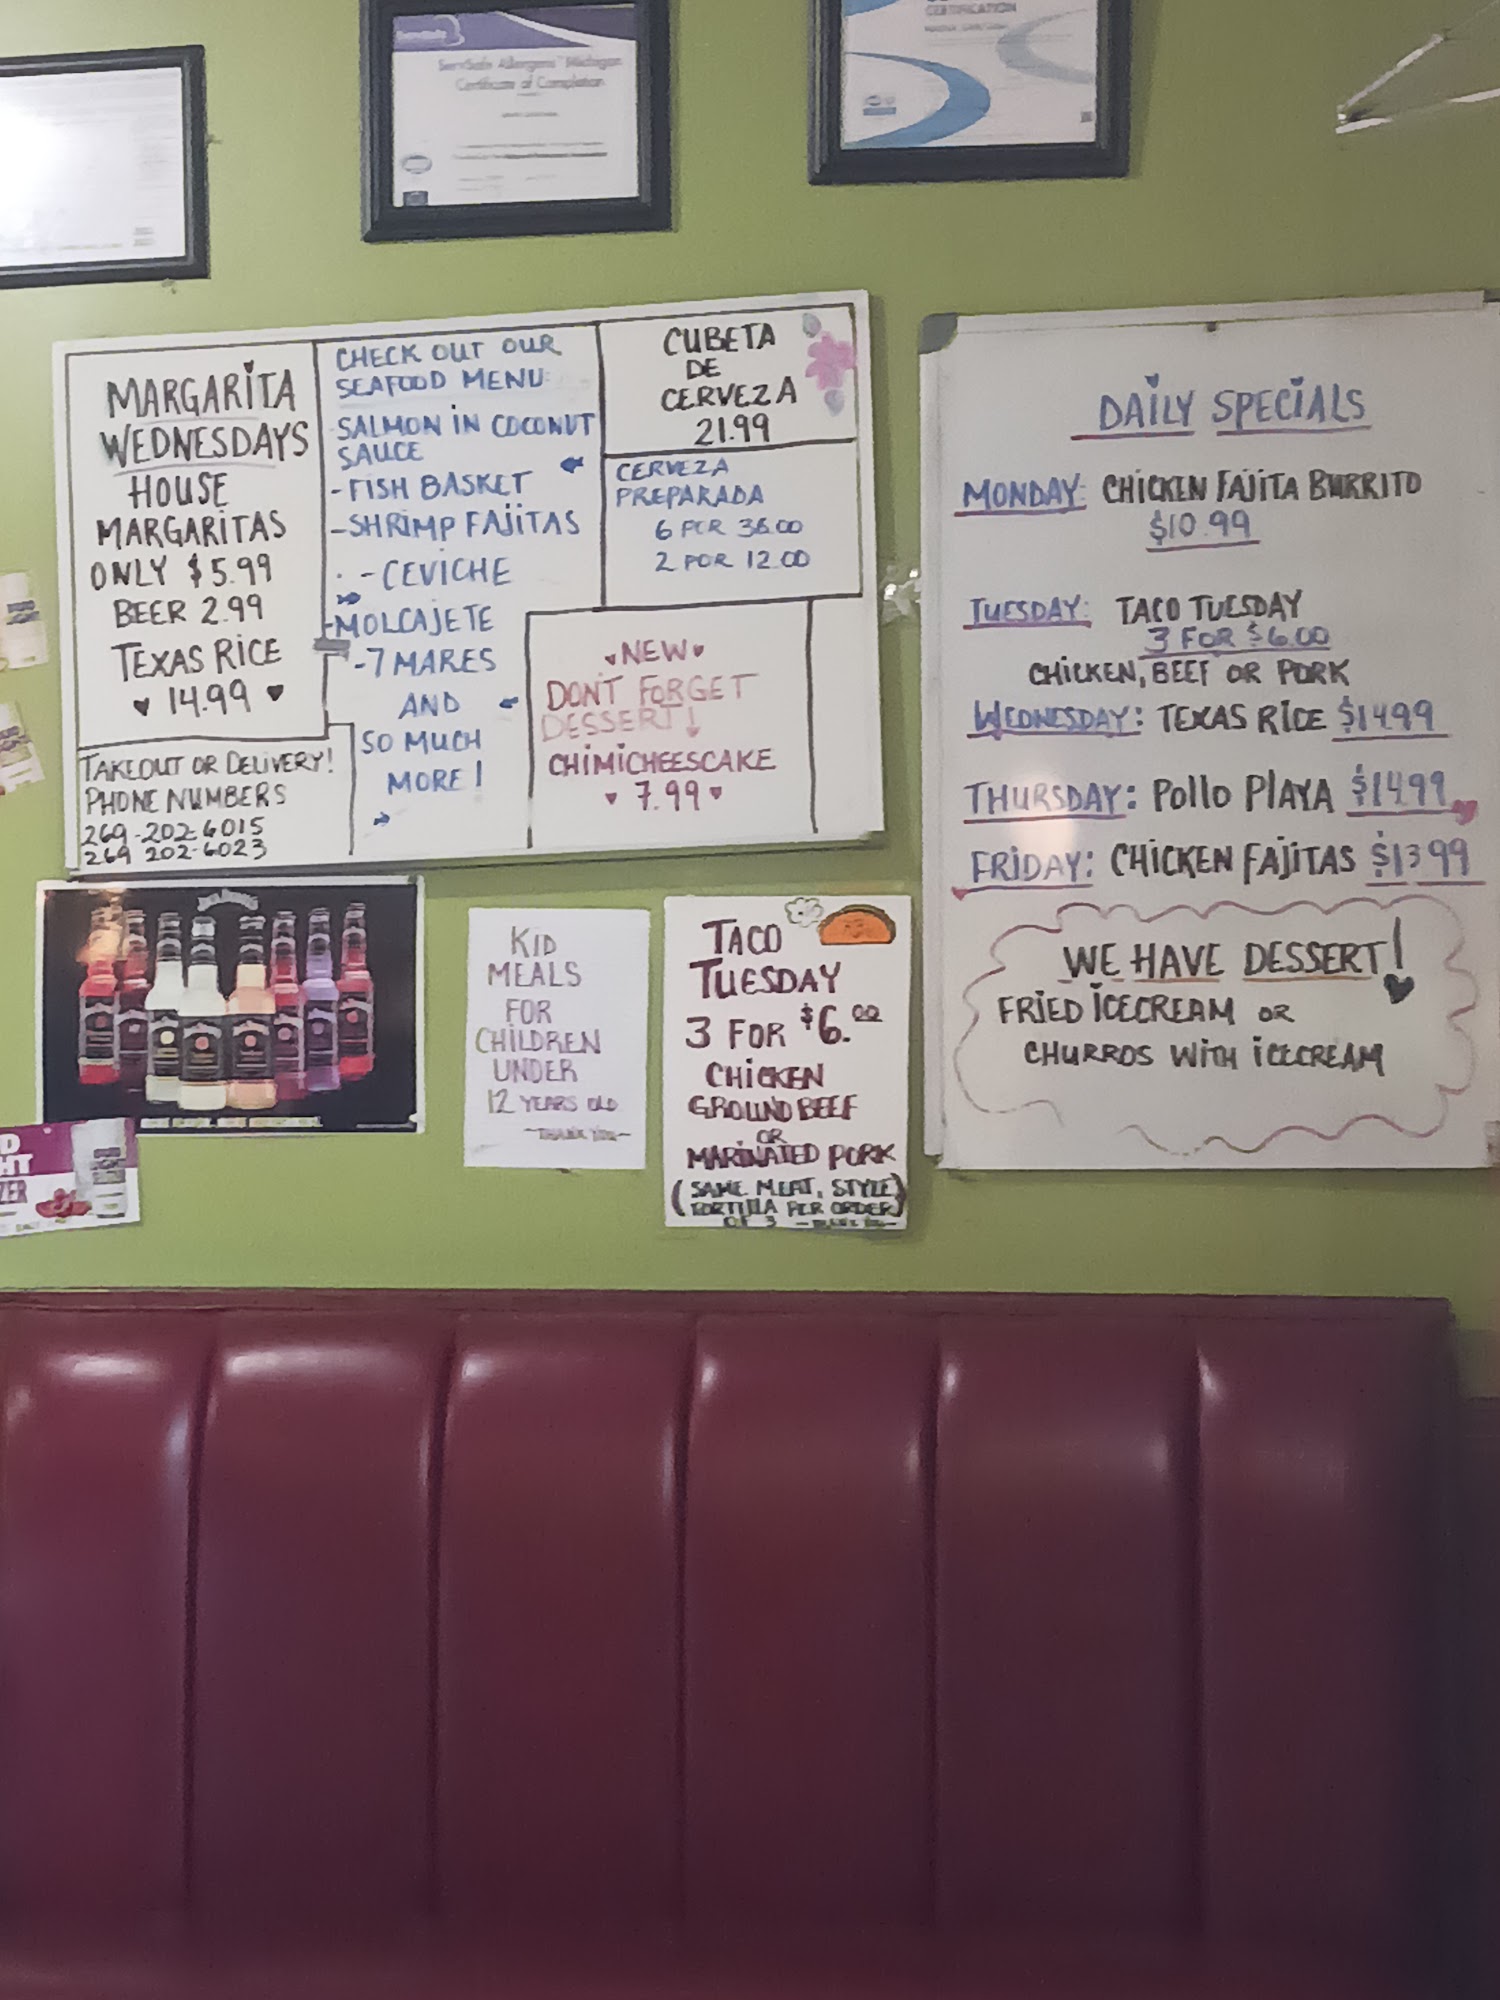 ServSafe Allergens™ Michigan
Certificate of Completion
CERTIFICATION
MARGARITA
WEDNESDAYS
HOUSE
MARGARITAS
ONLY $5.99
BEER 2.99
TEXAS RICE
14.99
TAKEOUT OR DELIVERY!
PHONE NUMBERS
269-202-6015
269 202-6023
CHECK OUT OUR
SEAFOOD MENU:
SALMON IN COCONUT
SAUCE
-FISH BASKET
-SHRIMP FAJITAS
-CEVICHE
-MOLCAJETE
-7 MARES
AND
SO MUCH
MORE!
CUBETA
DE
CERVEZA
21.99
CERVEZA
PREPARADA
6 POR 36.00
2 POR 12.00
NEW
DONT FORGET
DESSERT!
CHIMICHEESCAKE
7.99
DAILY SPECIALS
MONDAY: CHICKEN FAJITA BURRITO
$10.99
TUESDAY: TACO TUESDAY
3 FOR $6.00
CHICKEN, BEEF OR PORK
WEDNESDAY: TEXAS RICE $14.99
THURSDAY: POLLO PLAYA $14.99
FRIDAY: CHICKEN FAJITAS $13.99
WE HAVE DESSERT!
FRIED ICECREAM OR
CHURROS WITH ICECREAM
KID
MEALS
FOR
CHILDREN
UNDER
12 YEARS OLD
~THANK YOU~
TACO
TUESDAY
3 FOR $6.00
CHICKEN
GROUND BEEF
OR
MARINATED PORK
(SAME MEAT, STYLE
TORTILLA PER ORDER)
OF 3